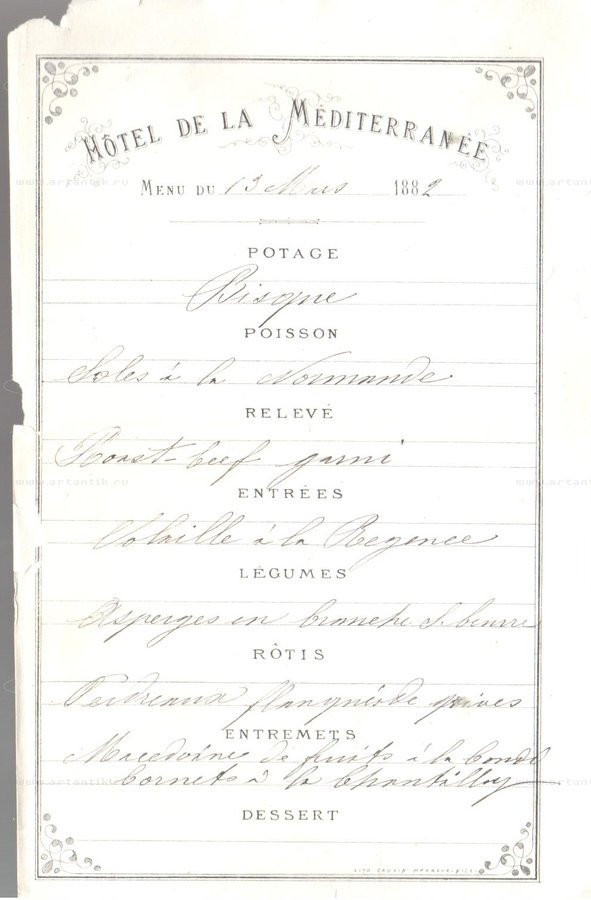 HÔTEL DE LA MÉDITERRANÉE
MENU DU 13 Mars 1882
POTAGE
Bisque
POISSON
Soles à la Normande
RELEVÉ
Roast-beef garni
ENTRÉES
Volaille à la Regence
LÉGUMES
Asperges en branche S. beurre
RÔTIS
Perdreaux flanqués de grives
ENTREMETS
Macedoine de fruits à la Condé
Cornets à la Chantilly
DESSERT
www.artantik.ru